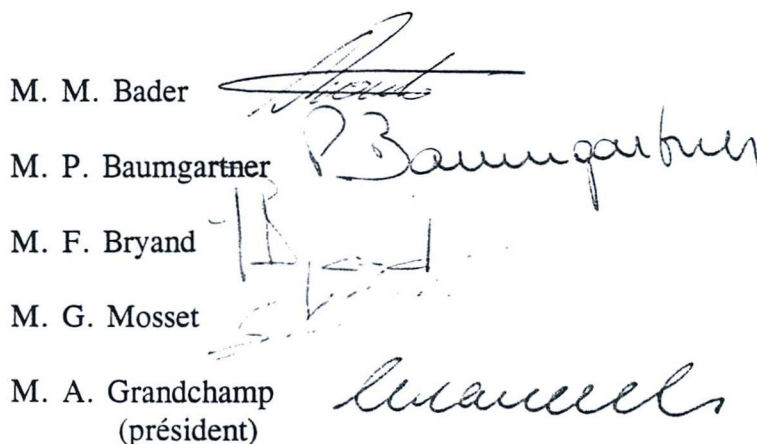 M. M. Bader
M. P. Baumgartner P Baumgartner
M. F. Bryand
M. G. Mosset
M. A. Grandchamp
(président)